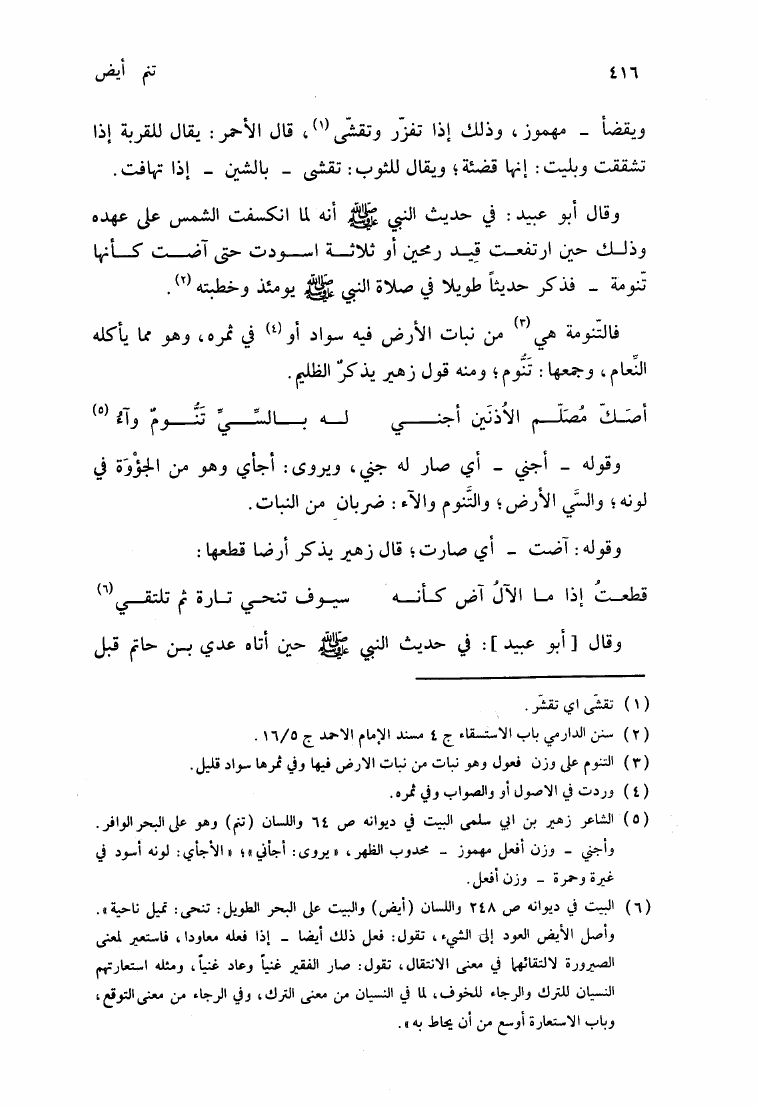 ٤١٦
تنم أيض
ويقضأ – مهموز، وذلك إذا تفزّر وتقشّى(١)، قال الأحمر: يقال للقربة إذا
تشققت وبليت: إنها قضئة؛ ويقال للثوب: تقشى – بالشين – إذا تهافت.
وقال أبو عبيد: في حديث النبي ﷺ أنه لما انكسفت الشمس على عهده
وذلك حين ارتفعت قيد رمحين أو ثلاثة اسودت حتى آضت كأنها
تنومة – فذكر حديثاً طويلا في صلاة النبي ﷺ يومئذ وخطبته(٢).
فالتّنومة هي(٣) من نبات الأرض فيه سواد أو(٤) في ثمره، وهو مما يأكله
النَّعام، وجمعها: تَنُّوم؛ ومنه قول زهير يذكرّ الظليم.
أصَكّ مُصَلَّم الأذنَين أجنى له بالسِّيِّ تَنُّومٌ وآءُ(٥)
وقوله – أجني – أي صار له جنى، ويروى: أجأي وهو من الجؤْوَة في
لونه؛ والسَّي الأرض؛ والتَّنوم والآء: ضربان من النبات.
وقوله: آضت – أي صارت؛ قال زهير يذكر أرضا قطعها:
قطعتُ إذا ما الآلُ آض كأنه سيوف تنحي تارة ثم تلتقي(٦)
وقال [أبو عبيد]: في حديث النبي ﷺ حين أتاه عدي بن حاتم قبل
(١) تقشّى اي تقشّر.
(٢) سنن الدارمي باب الاستسقاء ج ٤ مسند الإمام الاحمد ج ١٦/٥.
(٣) التنوم على وزن فعول وهو نبات من نبات الارض فيها وفي ثمرها سواد قليل.
(٤) وردت في الاصول أو والصواب وفي ثمره.
(٥) الشاعر زهير بن ابي سلمى البيت في ديوانه ص ٦٤ واللسان (تنم) وهو على البحر الوافر.
وأجني – وزن أفعل مهموز – محدوب الظهر، «يروى: أجأني»؛ «الأجأي: لونه أسود في
غبرة وحمرة – وزن أفعل.
(٦) البيت في ديوانه ص ٢٤٨ واللسان (أيض) والبيت على البحر الطويل: تنحى: تميل ناحية».
وأصل الأيض العود إلى الشيء، تقول: فعل ذلك أيضا – إذا فعله معاودا، فاستعير لمعنى
الصيرورة لالتقائهما في معنى الانتقال، تقول: صار الفقير غنياً وعاد غنياً، ومثله استعارتهم
النسيان للترك والرجاء للخوف، لما في النسيان من معنى الترك، وفي الرجاء من معنى التوقع،
وباب الاستعارة أوسع من أن يحاط به».